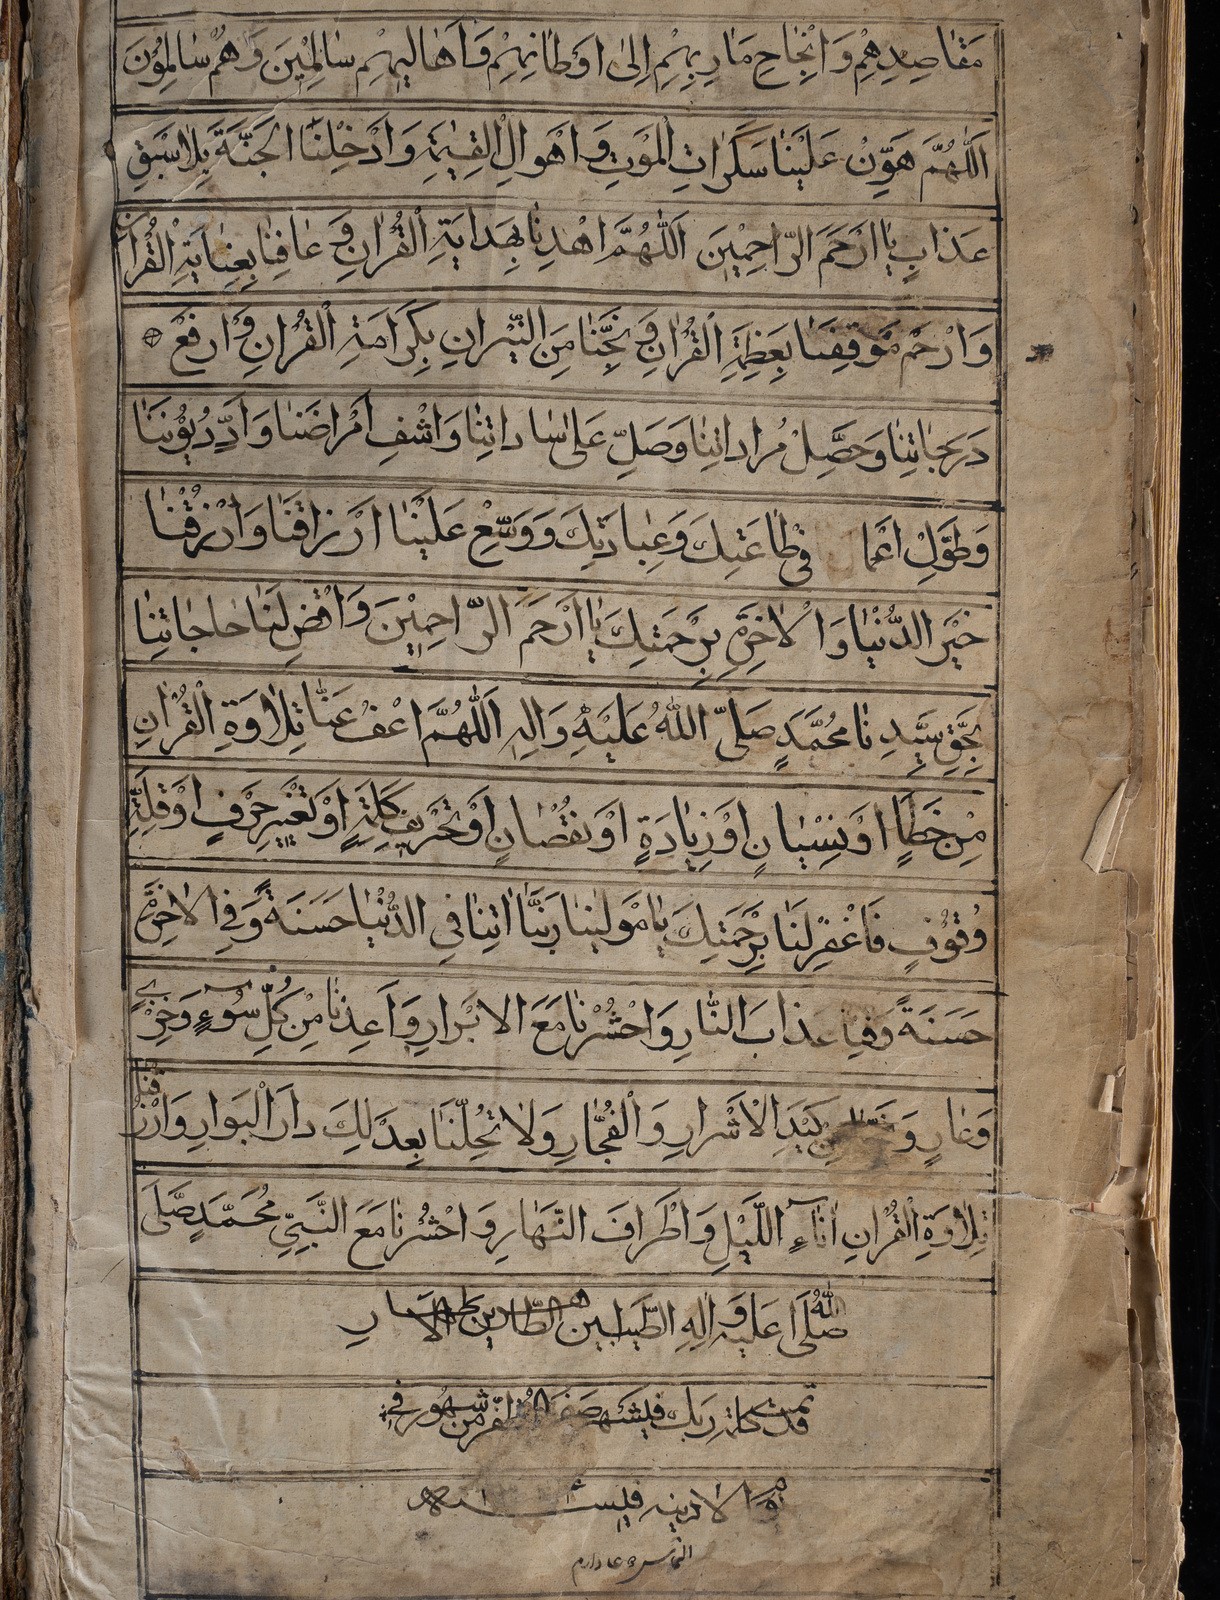 مَقٰاصِدِهِمْ وَ اِنْجٰاحِ مَاٰرِبِهِمْ اِلىٰ اَوْطٰانِهِمْ وَ اَهٰالِيهِمْ سٰالِمِيْنَ وَ هُمْ سٰالِمُوْنَ
اَللّٰهُمَّ هَوِّنْ عَلَيْنٰا سَكَرٰاتِ الْمَوْتِ وَ اَهْوٰالِ الْقِيٰمَةِ وَ اَدْخِلْنَا الْجَنَّةَ بِلٰا سَبْقِ
عَذٰابٍ يٰا اَرْحَمَ الرّٰاحِمِيْنَ اَللّٰهُمَّ اهْدِنٰا بِهِدٰايَةِ الْقُرْاٰنِ وَ عٰافِنٰا بِعِنٰايَةِ الْقُرْاٰنِ
وَ ارْحَمْ مَوْقِفَنٰا بِعَظَمَةِ الْقُرْاٰنِ وَ نَجِّنٰا مِنَ النِّيْرٰانِ بِكَرٰامَةِ الْقُرْاٰنِ وَ ارْفَعْ
دَرَجٰاتِنٰا وَ حَصِّلْ مُرٰادٰاتِنٰا وَ صَلِّ عَلىٰ سٰادٰاتِنٰا وَ اشْفِ اَمْرٰاضَنٰا وَ اَدِّ دُيُوْنَنٰا
وَ طَوِّلْ اَعْمٰا فِيْ طٰاعَتِكَ وَ عِبٰادَتِكَ وَ وَسِّعْ عَلَيْنٰا اَرْزٰاقَنٰا وَ ارْزُقْنٰا
خَيْرَ الدُّنْيٰا وَ الْاٰخِرَةِ بِرَحْمَتِكَ يٰا اَرْحَمَ الرّٰاحِمِيْنَ وَ اقْضِ لَنٰا حٰاجٰاتِنٰا
بِحَقِّ سَيِّدِنٰا مُحَمَّدٍ صَلَّى اللّٰهُ عَلَيْهِ وَ اٰلِهِ اَللّٰهُمَّ اعْفُ عَنّٰا تِلٰاوَةِ الْقُرْاٰنِ
مِنْ خَطَاٍ اَوْ نِسْيٰانٍ اَوْ زِيٰادَةٍ اَوْ نُقْصٰانٍ اَوْ تَحْرِيْفِ كَلِمَةٍ اَوْ تَغْيِيْرِ حَرْفٍ اَوْ قِلَّةِ
وُقُوْفٍ فَاغْفِرْ لَنٰا بِرَحْمَتِكَ يٰا مَوْلٰينٰا رَبَّنٰا اٰتِنٰا فِي الدُّنْيٰا حَسَنَةً وَ فِي الْاٰخِرَةِ
حَسَنَةً وَ قِنٰا عَذٰابَ النّٰارِ وَ احْشُرْنٰا مَعَ الْاَبْرٰارِ وَ اَعِذْنٰا مِنْ كُلِّ سُوْءٍ وَ خِزْيٍ
وَ عٰارٍ وَ كَيْدِ الْاَشْرٰارِ وَ الْفُجّٰارِ وَ لٰا تُحِلَّنٰا بَعْدَ ذٰلِكَ دٰارَ الْبَوٰارِ وَ ارْزُقْنٰا
تِلٰاوَةِ الْقُرْاٰنِ اٰنٰآءِ اللَّيْلِ وَ اَطْرٰافَ النَّهٰارِ وَ احْشُرْنٰا مَعَ النَّبِيِّ مُحَمَّدٍ صَلَّى
اللّٰهُ عَلَيْهِ وَ اٰلِهِ الطَّيِّبِيْنَ الطّٰاهِرِيْنَ
قد تمت كلمة ربك